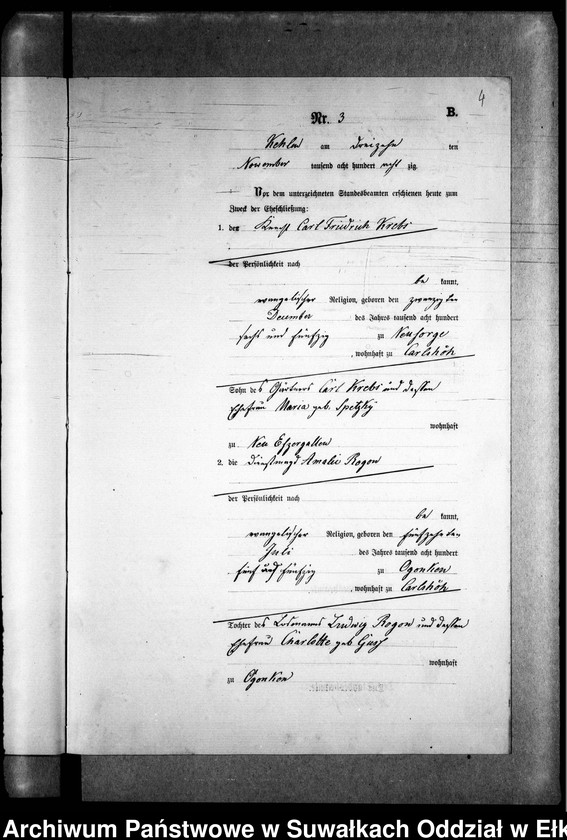 4
Nr. 3 B.
Kehlen am dreizehn ten
November tausend acht hundert acht zig.
Vor dem unterzeichneten Standesbeamten erschienen heute zum
Zweck der Eheschließung:
1. der Knecht Carl Friedrich Krebs
der Persönlichkeit nach
be kannt,
evangelischer Religion, geboren den zwanzigsten
December des Jahres tausend acht hundert
sechs und fünfzig zu Neusorge
, wohnhaft zu Carlshöh
Sohn des Gärtners Carl Krebs und dessen
Ehefrau Maria geb. Spetzky
wohnhaft
zu Neu Eszergallen
2. die Dienstmagd Amalie Rogon
der Persönlichkeit nach
be kannt,
evangelischer Religion, geboren den fünfzehnten
Juli des Jahres tausend acht hundert
fünf und fünfzig zu Ogonken
, wohnhaft zu Carlshöh
Tochter des Losmanns Ludwig Rogon und dessen
Ehefrau Charlotte geb
wohnhaft
zu Ogonken
Archiwum Państwowe w Suwałkach Oddział w Ełk